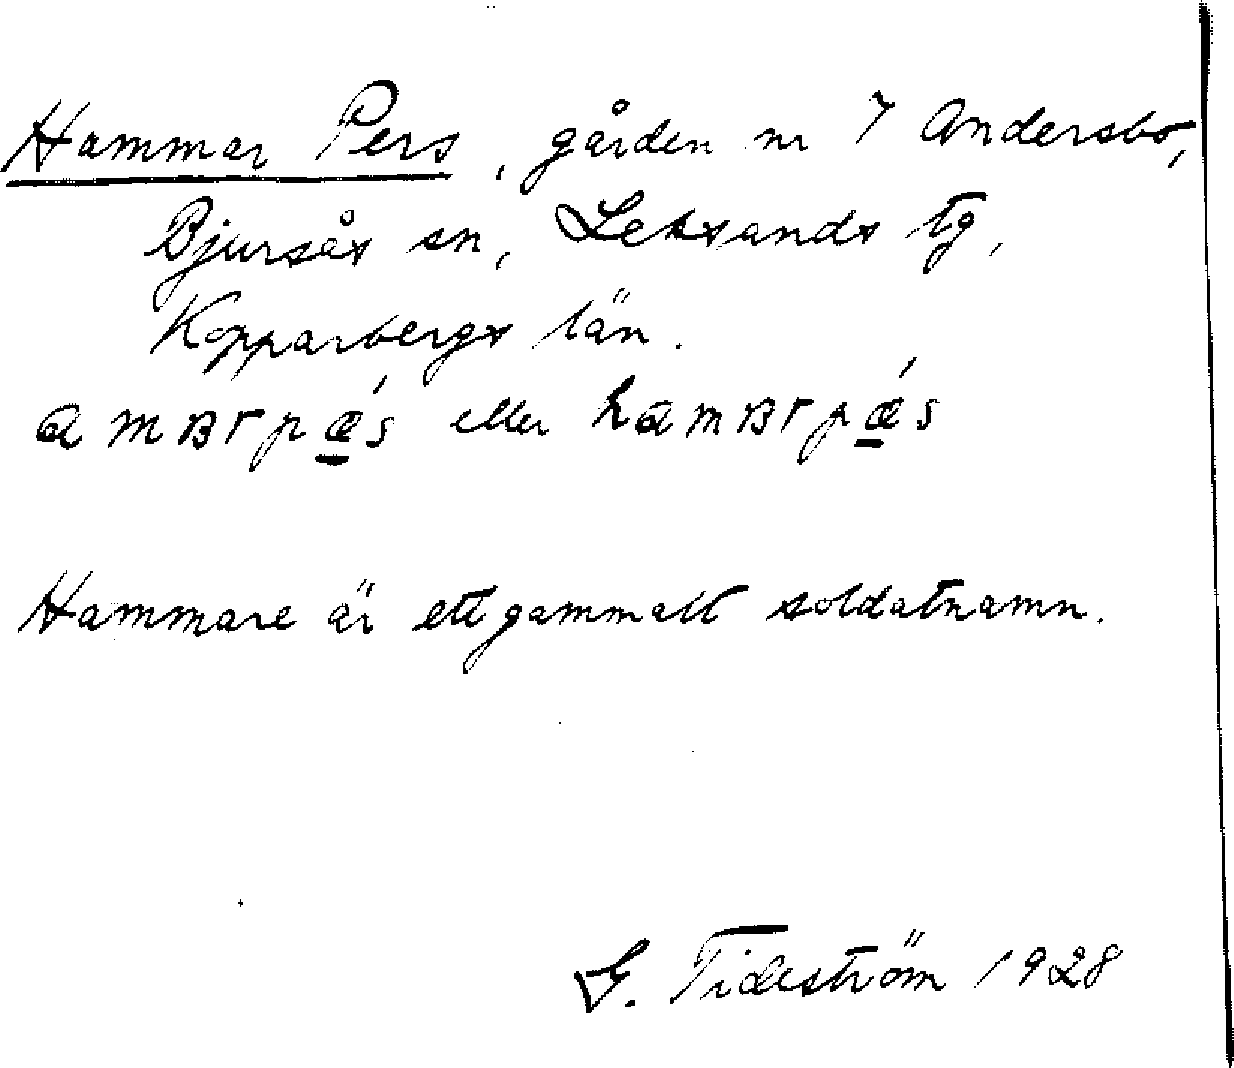 Hammar Pers, gården nr 7 Andersbo,
Bjursås sn, Leksands tg,
Kopparbergs län.
ɑmʙrpǽs eller hɑmʙrpǽs
Hammare är ett gammalt soldatnamn.
G. Tideström 1928